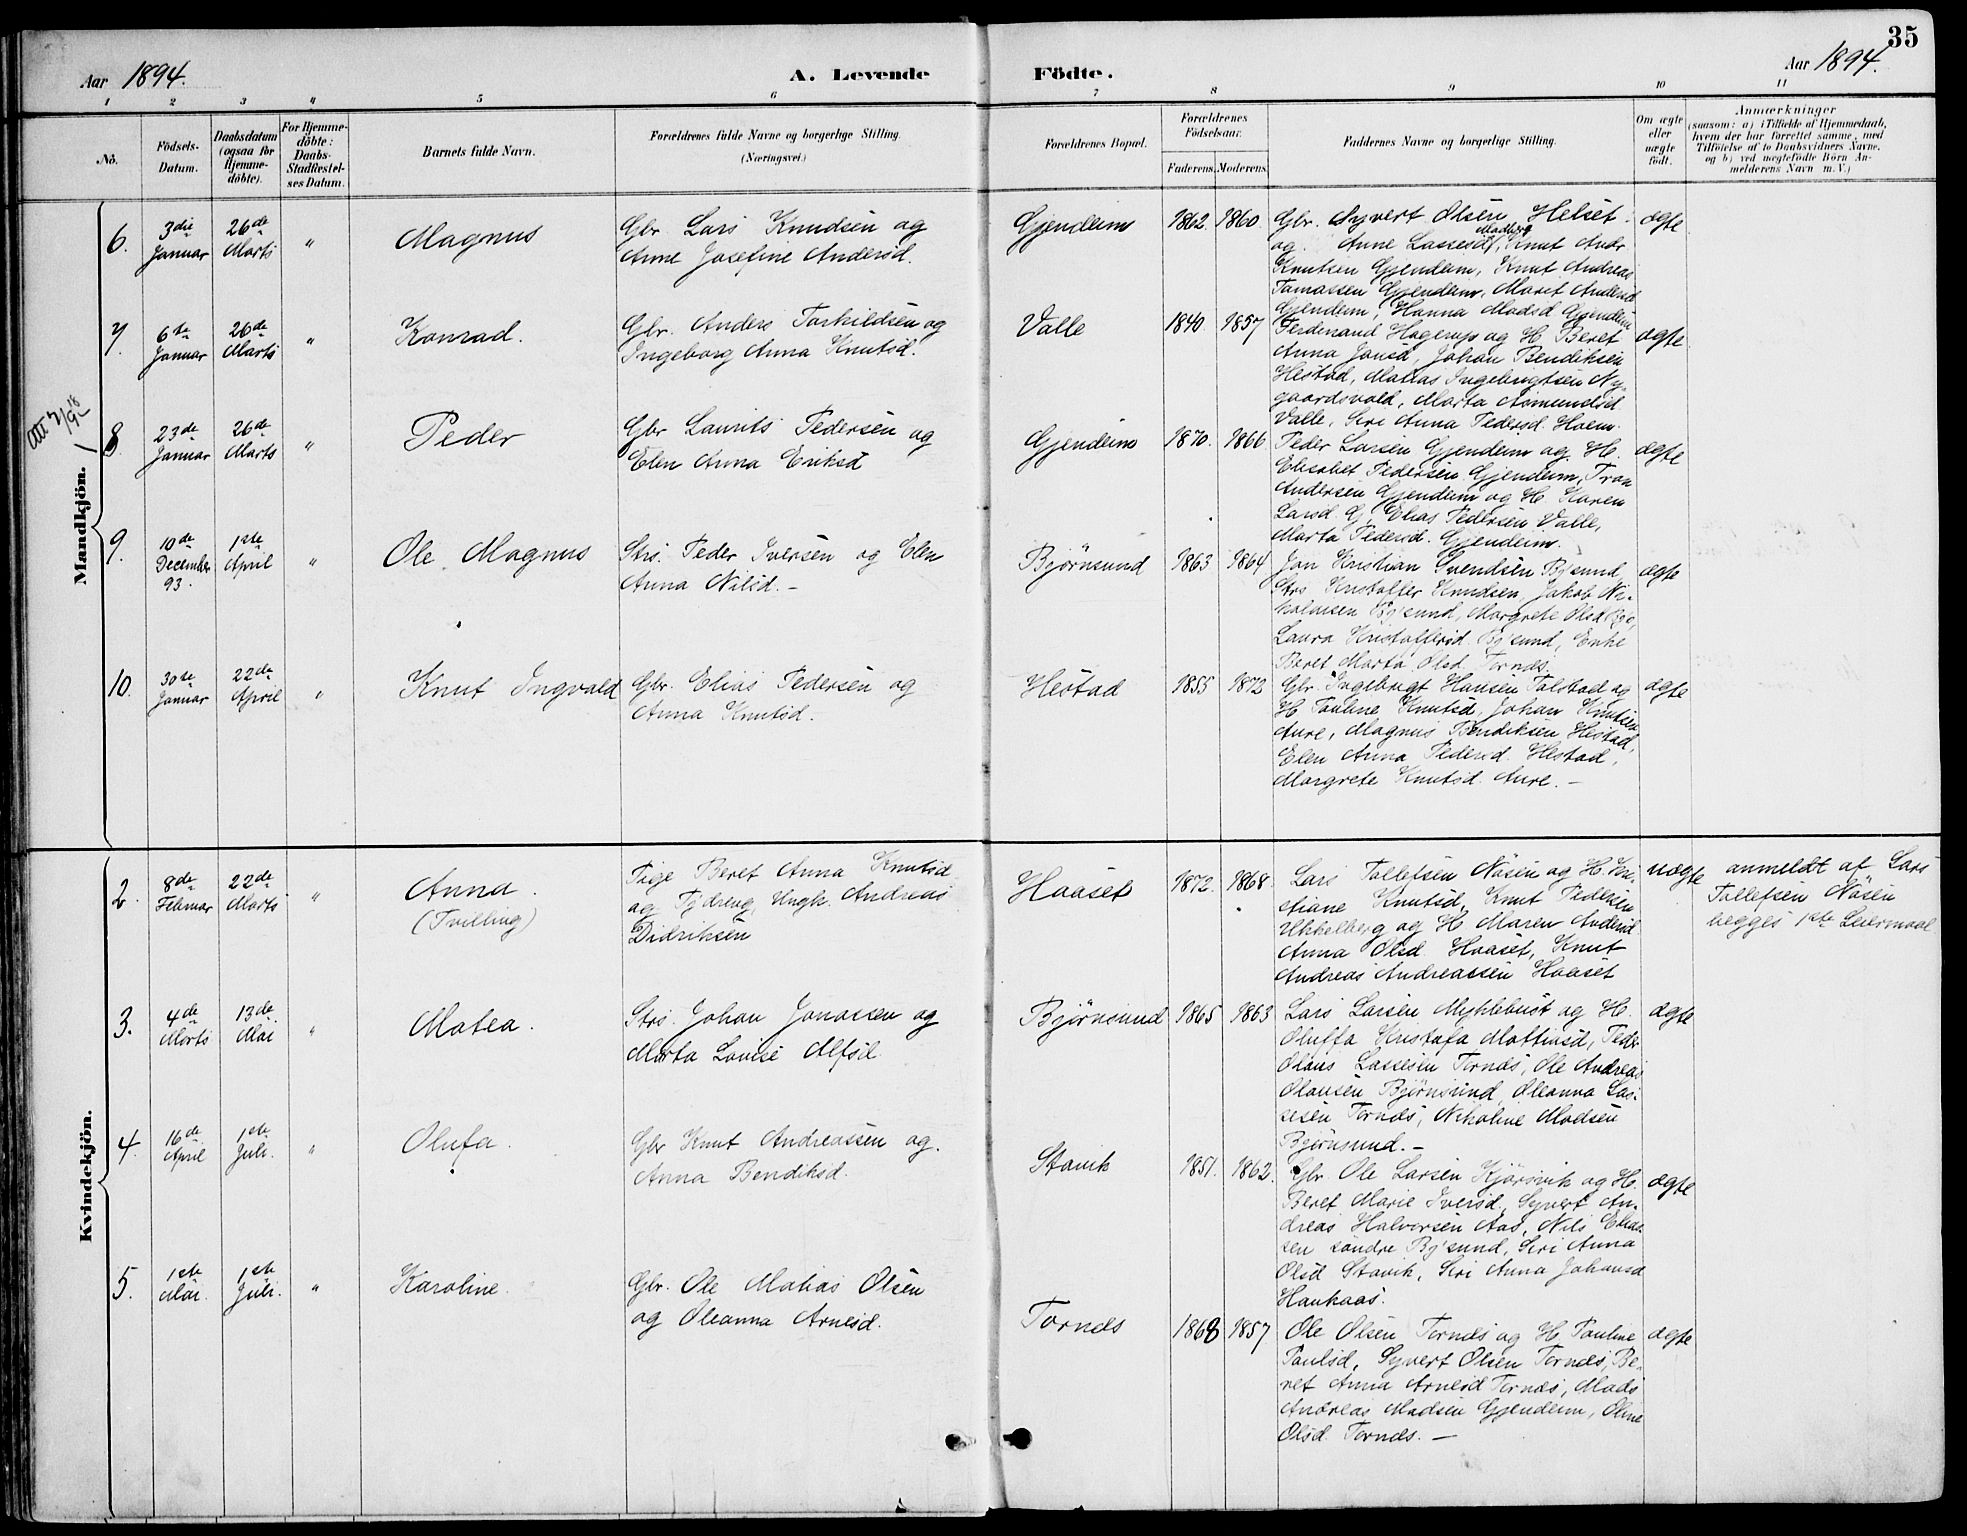 35
Aar 1894.
A. Levende
Födte.
Aar 1894.
1 2 3 4 5 6 7 8 9 10 11
No.
Födsels-
Datum.
Daabsdatum
(ogsaa for
Hjemme-
döbte).
For Hjemme-
döbte:
Daabs-
Stadfæstel-
ses Datum.
Barnets fulde Navn.
Forældrenes fulde Navne og borgerlige Stilling.
(Næringsvei.)
Forældrenes Bopæl.
Forældrenes
Födselsaar.
Faderens. Moderens.
Faddernes Navne og borgerlige Stilling.
Om ægte
eller
uægte
födt.
Anmærkninger
(saasom: a) i Tilfælde af Hjemmedaab,
hvem der har forrettet samme, med
Tilföielse af to Daabsvidners Navne,
og b) ved uægtefödte Börn An-
melderens Navn m. V.)
Mandkjön.
6.
3die
Januar
26de
Marts
"
Magnus
Gbr. Lars Knudsen og
Anne Josefine Andersd.
Gjendeim
1862. 1860.
Gbr. Syvert Olsen Helset
og Anne Lassesd, Knut Andr.
Knutsen Gjendeim, Knut Andreas
Tomassen Gjendeim, Marit Andersd
Gjendeim, Hanna Madsd Gjendeim
ægte
7.
6te
Januar
26de
Marts
"
Konrad.
Gbr. Anders Torkildsen og
Ingeborg Anna Knutsd.
Valle
1840. 1857
Ferdinand Hagerup og H. Beret
Anna Jonsd, Johan Bendiksen
Hestad, Matias Ingebrigtsen Ny-
gaardsvold, Marta Aamundsd
Valle, Siri Anna Pedersd. Hoem.
ægte
8
23de
Januar
26de
Marts
"
Peder
Gbr Laurits Pedersen og
Elen Anna Eriksd
Gjendeim
1870. 1866
Peder Larsen Gjendeim og H.
Elisabet Pedersen Gjendeim, Tron
Andersen Gjendeim og H. Karen
Larsd. G. Elias Pedersen Valle,
Marta Pedersd. Gjendeim.
ægte
9.
10de
December
93.
1ste
April
"
Ole Magnus
Strs. Peder Iversen og Elen
Anna Nilsd. -
Bjørnsund
1863 1864
Jon Kristian Svendsen Bj'sund,
Strs Kristoffer Knudsen, Jakob Ni-
kolaisen Bj'sund, Margrete Olsd
Laura Kristoffersd Bj'sund, Enke
Beret Marta Olsd. Tornes.
ægte
10.
30te
Januar
22de
April
"
Knut Ingvald
Gbr. Elias Pedersen og
Anna Knutsd.
Hestad
1855 1872
Gbr. Ingebrigt Hansen Tolstad og
H. Pauline Knutsd, Johan Knutsen
Aure, Magnus Bendiksen Hestad,
Elen Anna Pedersd. Hestad,
Margrete Knutsd. Aure. -
ægte
Kvindekjön.
2.
8de
Februar
22de
Marts
"
Anna.
(Tvilling)
Pige Beret Anna Knutsd
og Tjdreng, Ungk. Andreas
Didriksen
Haaset
1872. 1868.
Lars Tollefsen Näsen og H. Kri-
stiane Knutsd, Knut Pedersen
Ukkelberg og H. Maren Andersd
Anna Olsd Haaset, Knut
Andreas Andreassen Haaset
uægte
anmeldt af Lars
Tollefsen Näsen
begges 1ste Leiermaal
3.
4de
Marts
13de
Mai
"
Matea.
Strs. Johan Jonassen og
Marta Lovise
Bjørnsund
1865 1863
Lars Larsen Myklebust og H.
Oluffa Kristofa Mattiasd, Peder
Olaus Lassesen Tornes, Ole Andreas
Olausen Bjørnsund, Oleanna Las-
sesen Tornes, Nikoline Madsen
Bjørnsund. -
ægte
4.
16de
April
1ste
Juli.
"
Olufa.
Gbr Knut Andreassen og.
Anna Bendiksd.
Stavik
1851. 1862.
Gbr. Ole Larsen Kjørsvik og H.
Beret Marie Iversd, Syvert An-
dreas Halvorsen Aas, Nils Elias-
sen søndre Bj'sund, Siri Anna
Olsd Stavik, Siri Anna Johansd
Haukaas.
ægte
5.
1ste
Mai.
1ste
Juli.
"
Karoline.
Gbr. Ole Matias Olsen
og Oleanna Arnesd.
Tornes
1868 1857
Ole Olsen Tornes og H. Pauline
Paulsd, Syvert Olsen Tornes, Be-
ret Anna Arnesd Tornes, Mads
Andreas Madsen Gjendeim, Oline
Olsd. Tornes. -
ægte